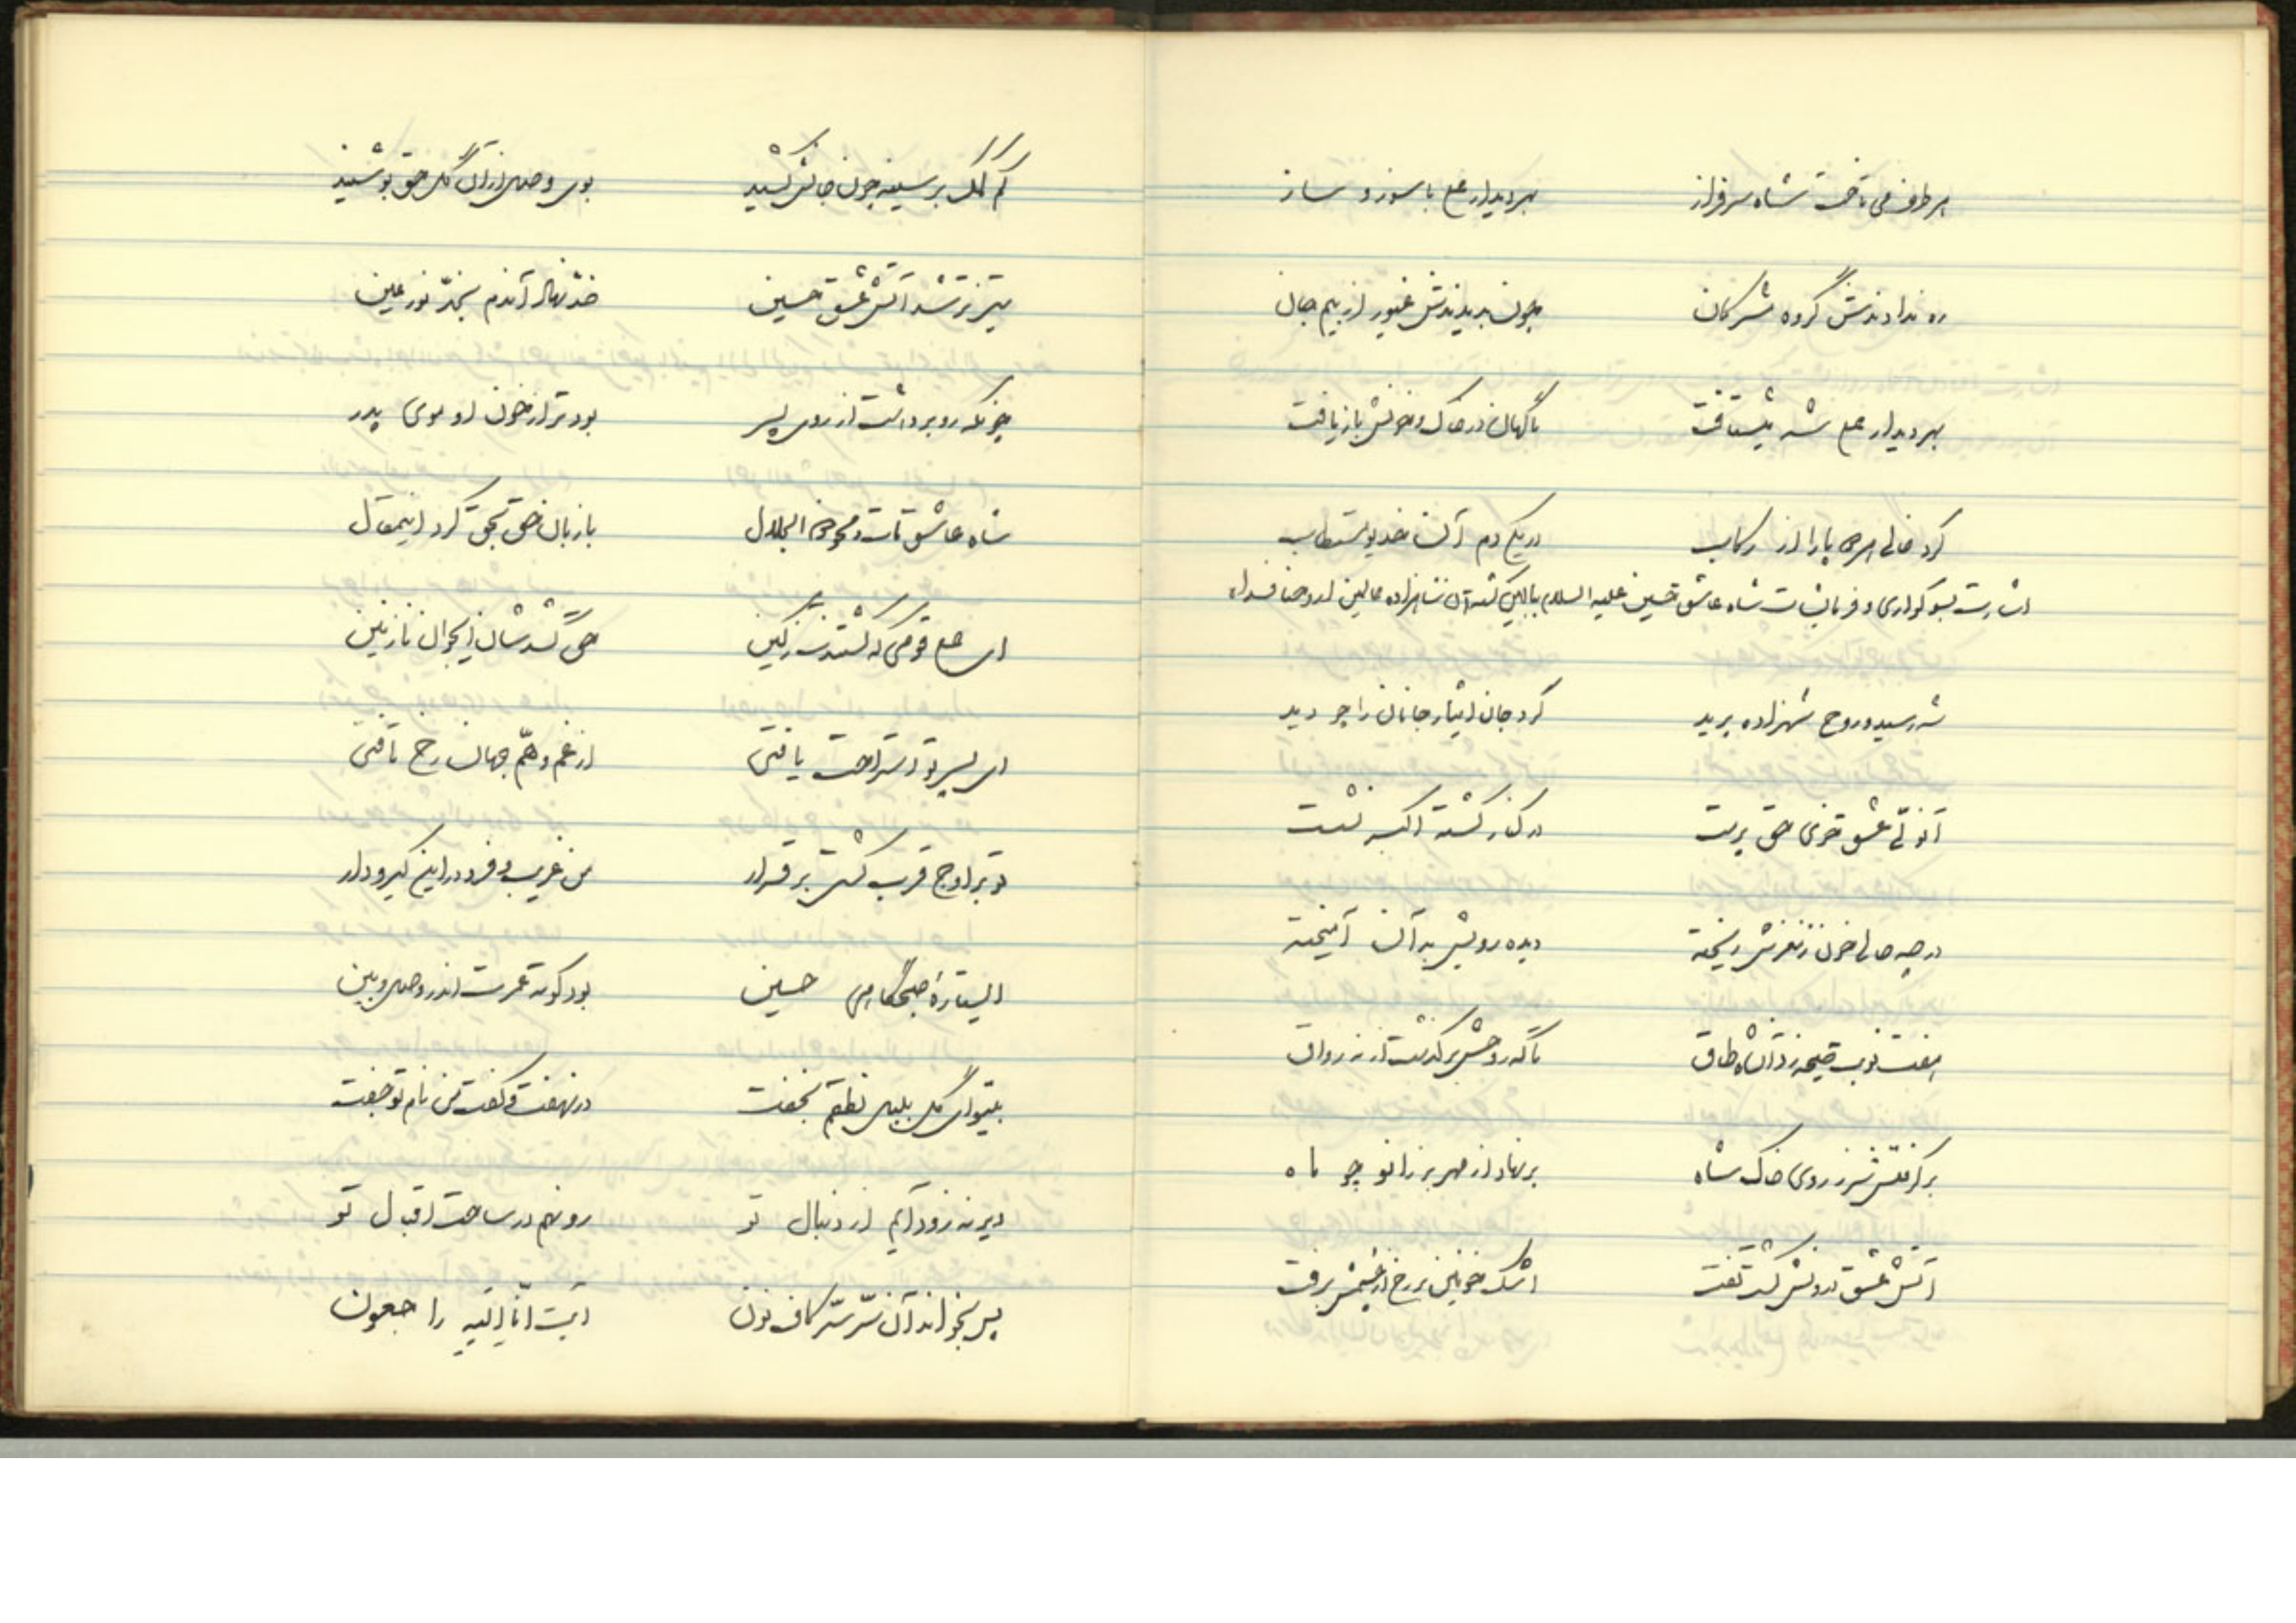 هر طرف می تاخت شاه سرفراز بهر دیدار علی با سوز و ساز
ره ندادندش گروه مشرکان چون بدیدندش غیور از بیم جان
بهر دیدار علی شه می شتافت ناگهان در خاک و خونش بازیافت
کرد خالی هر دو پا را از رکاب در یکی دم آن خدیو مستطاب
اشارت بسوگواری و فرمایشات شاه عاشق حسین علیه السلام ببالین کشته آن شاهزاده عالمین ارواحنا فداه
شه رسید و روح شهزاده پرید کرد جان ایثار جانان را چو دید
آن ولی عشق حق پرست در کنار کشته اکبر نشست
در چه حالی خون ز مغزش ریخته دیده رویش به آن آمیخته
هفت نوبت صیحه زد آن شاه طاق تا که روحش برگذشت از نه رواق
برگرفتش سر ز روی خاک شاه بر نهاد از مهر بر زانو چو ماه
آتش عشق درونش گشت تفت اشک خونین بر رخ از چشمش برفت
کم کمک بر سینه چون جانش کشید بوی وصل از آن گل حق بو شنید
تیزتر شد آتش عشق حسین خد نهاد آندم بخد نور عین
چونکه رو برداشت از روی پسر بود تر از خون او موی پدر
شاه عاشق مات و محو ذوالجلال با زبان حق بحق کرد این مقال
ای علی قومی که کشتندت ز کین حق کشدشان ای جوان نازنین
ای پسر تو استراحت یافتی از غم و هم جهان رخ تافتی
تو بر اوج قرب گشتی برقرار من غریب و فرد در این گیرودار
ای ستاره صبحگاهی حسین بود کوته عمرت اندر وصل و بین
بیتو ای گل بلبل نطقم بخفت در نهفت و گفت من نام تو جفت
دیر نه زود آیم از دنبال تو رو نهم در ساحت اقبال تو
پس بخواند آن سر سر کاف و نون آیت انا الیه راجعون